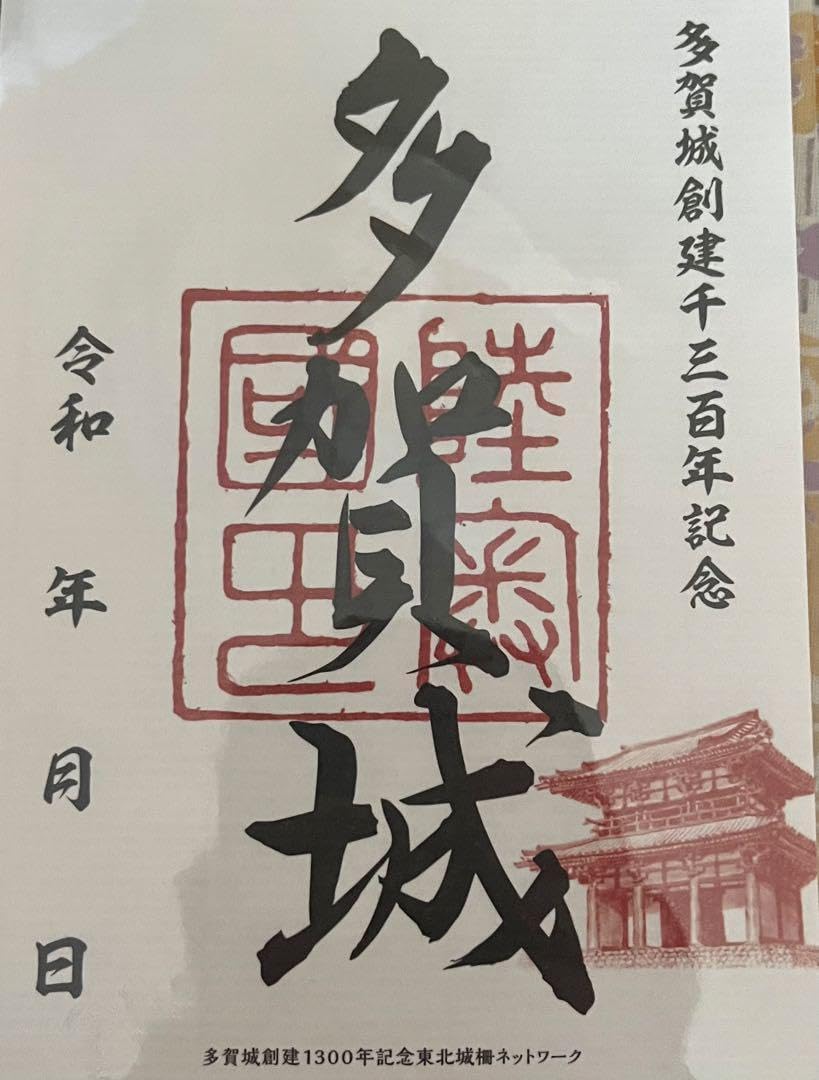 多賀城創建千三百年記念
多賀城
陸奥國印
令和 年 月 日
多賀城創建1300年記念東北城柵ネットワーク